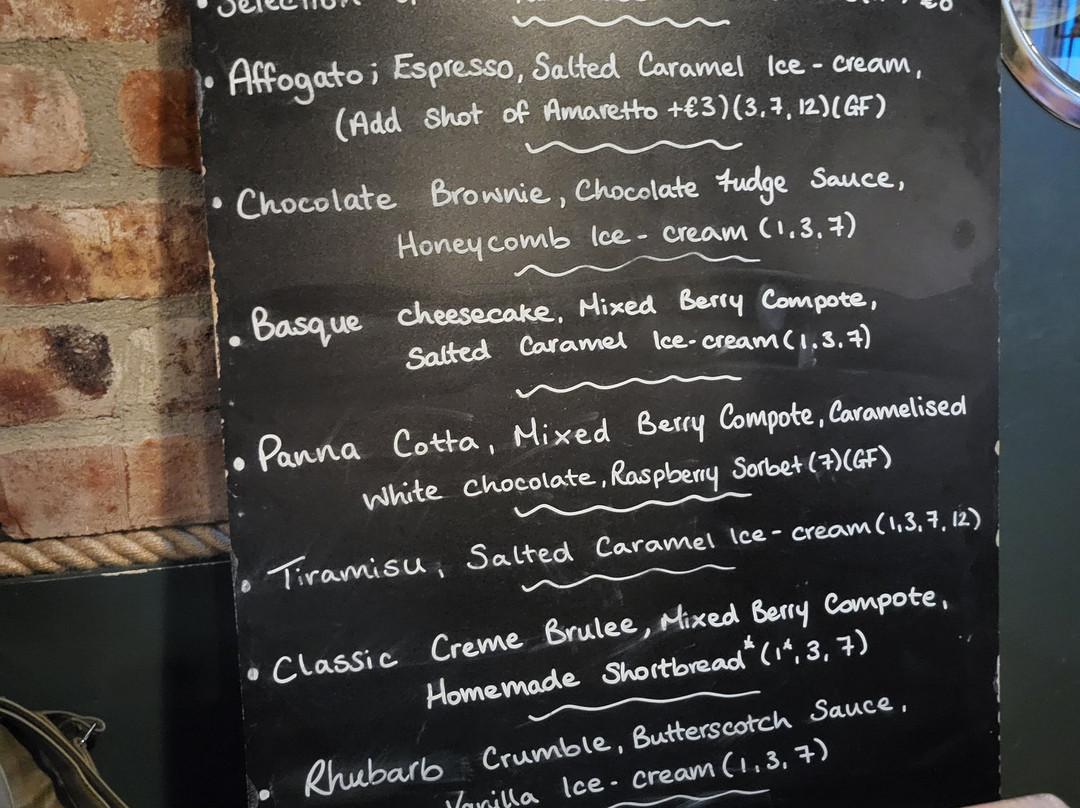 • Selection
• Affogato; Espresso, Salted Caramel Ice-cream,
(Add Shot of Amaretto +€3)(3,7,12)(GF)
• Chocolate Brownie, Chocolate Fudge Sauce,
Honeycomb Ice-cream (1,3,7)
• Basque cheesecake, Mixed Berry Compote,
Salted Caramel Ice-cream (1,3,7)
• Panna Cotta, Mixed Berry Compote, Caramelised
White Chocolate, Raspberry Sorbet (7)(GF)
• Tiramisu, Salted Caramel Ice-cream (1,3,7,12)
• Classic Creme Brulee, Mixed Berry Compote,
Homemade Shortbread* (1*, 3, 7)
• Rhubarb Crumble, Butterscotch Sauce,
Vanilla Ice-cream (1,3,7)